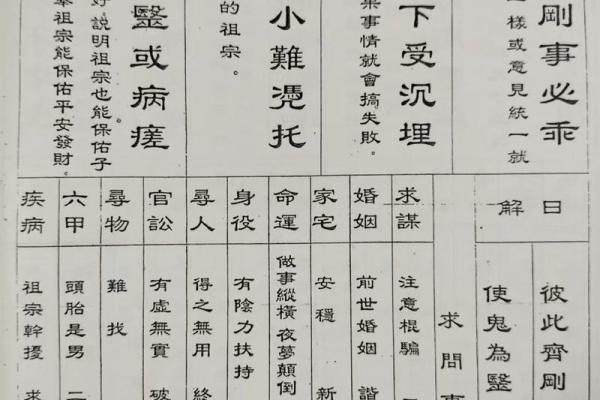 剛事必乖
樣或意見統一就
下受沉埋
果事情就會搞失敗。
小難憑托
的祖宗。
醫或病瘥
好，說明祖宗也能保佑子
奉祖宗能保佑平安發財。
解曰
彼此齊剛
使鬼為醫
求問事
求謀
注意棍騙
婚姻
前世婚姻 諧
家宅
安穩 新
命運
做事縱橫夜夢顛倒
身役
有陰力扶持
尋人
得之無用 終
官訟
有虛無實 破
尋物
難找
六甲
頭胎是男 二
疾病
祖宗幹擾 求